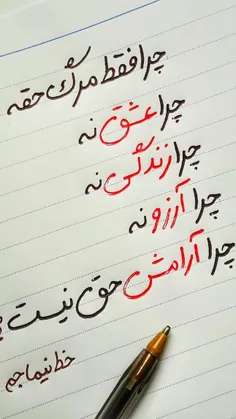 چرا فقط مرگ حقه
چرا عشق نه
چرا زندگی نه
چرا آرزو نه
چرا آرامش حق نیست؟
خط نیما جم